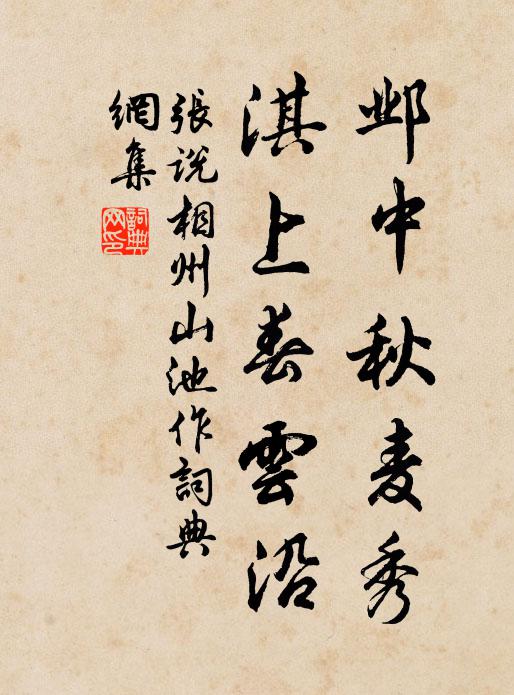 邺中秋麦秀
淇上春雲沿
張说相州山池作詞典
網集
詞典
网印